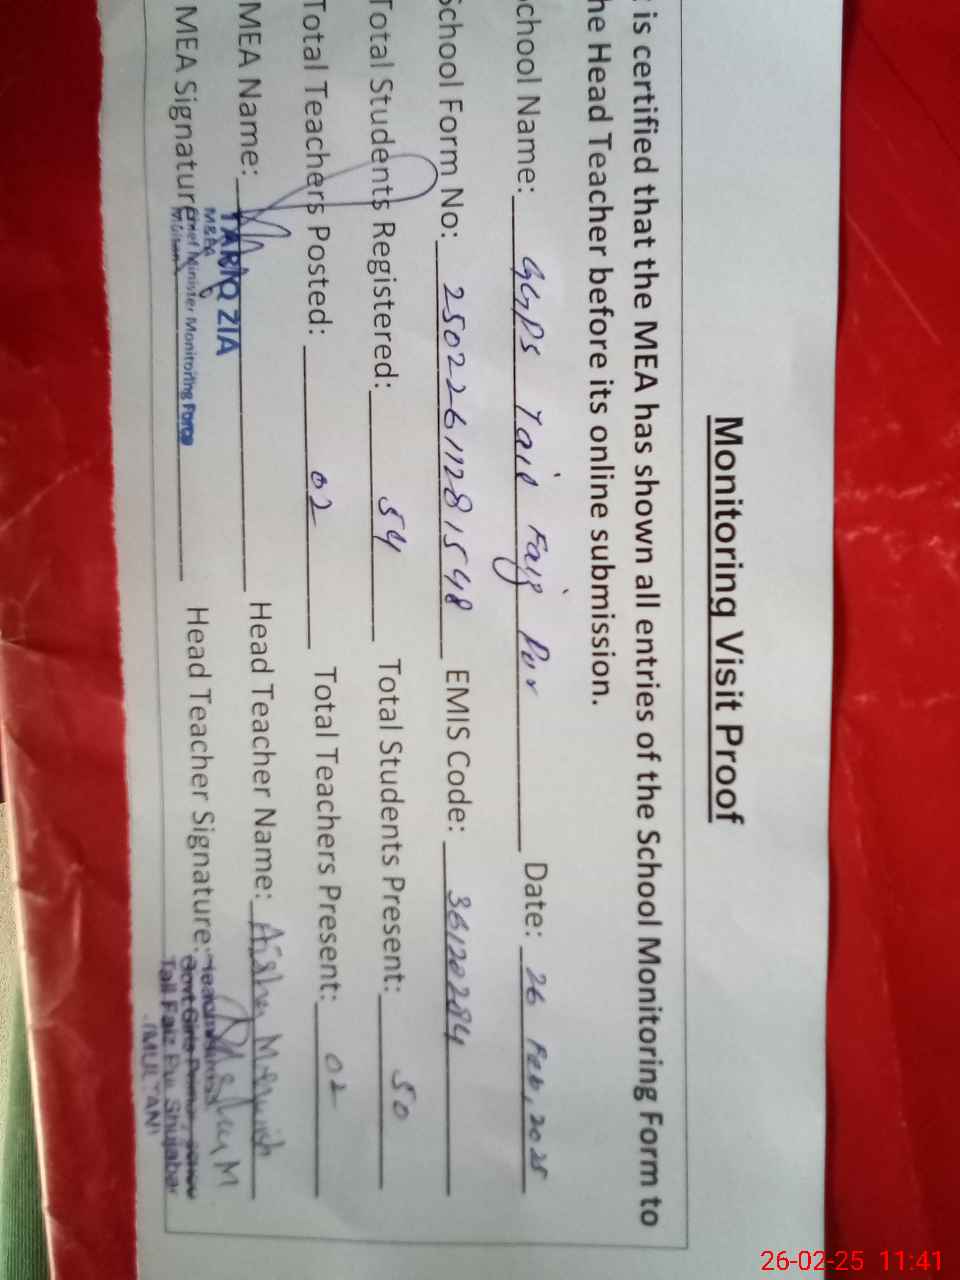 Monitoring Visit Proof
is certified that the MEA has shown all entries of the School Monitoring Form to
he Head Teacher before its online submission.
chool Name: GGPS Tail Faiz Pur Date: 26 Feb, 2025
School Form No: 25022611281548 EMIS Code: 36120284
Total Students Registered: 54 Total Students Present: 50
Total Teachers Posted: 02 Total Teachers Present: 02
MEA Name: TARIQ ZIA Head Teacher Name:
MEA Signature: M&EA
Chief Minister Monitoring Force
Multan
Head Teacher Signature:
Govt Girls
Tail Faiz Pur Shujabad
(MULTAN)
26-02-25 11:41